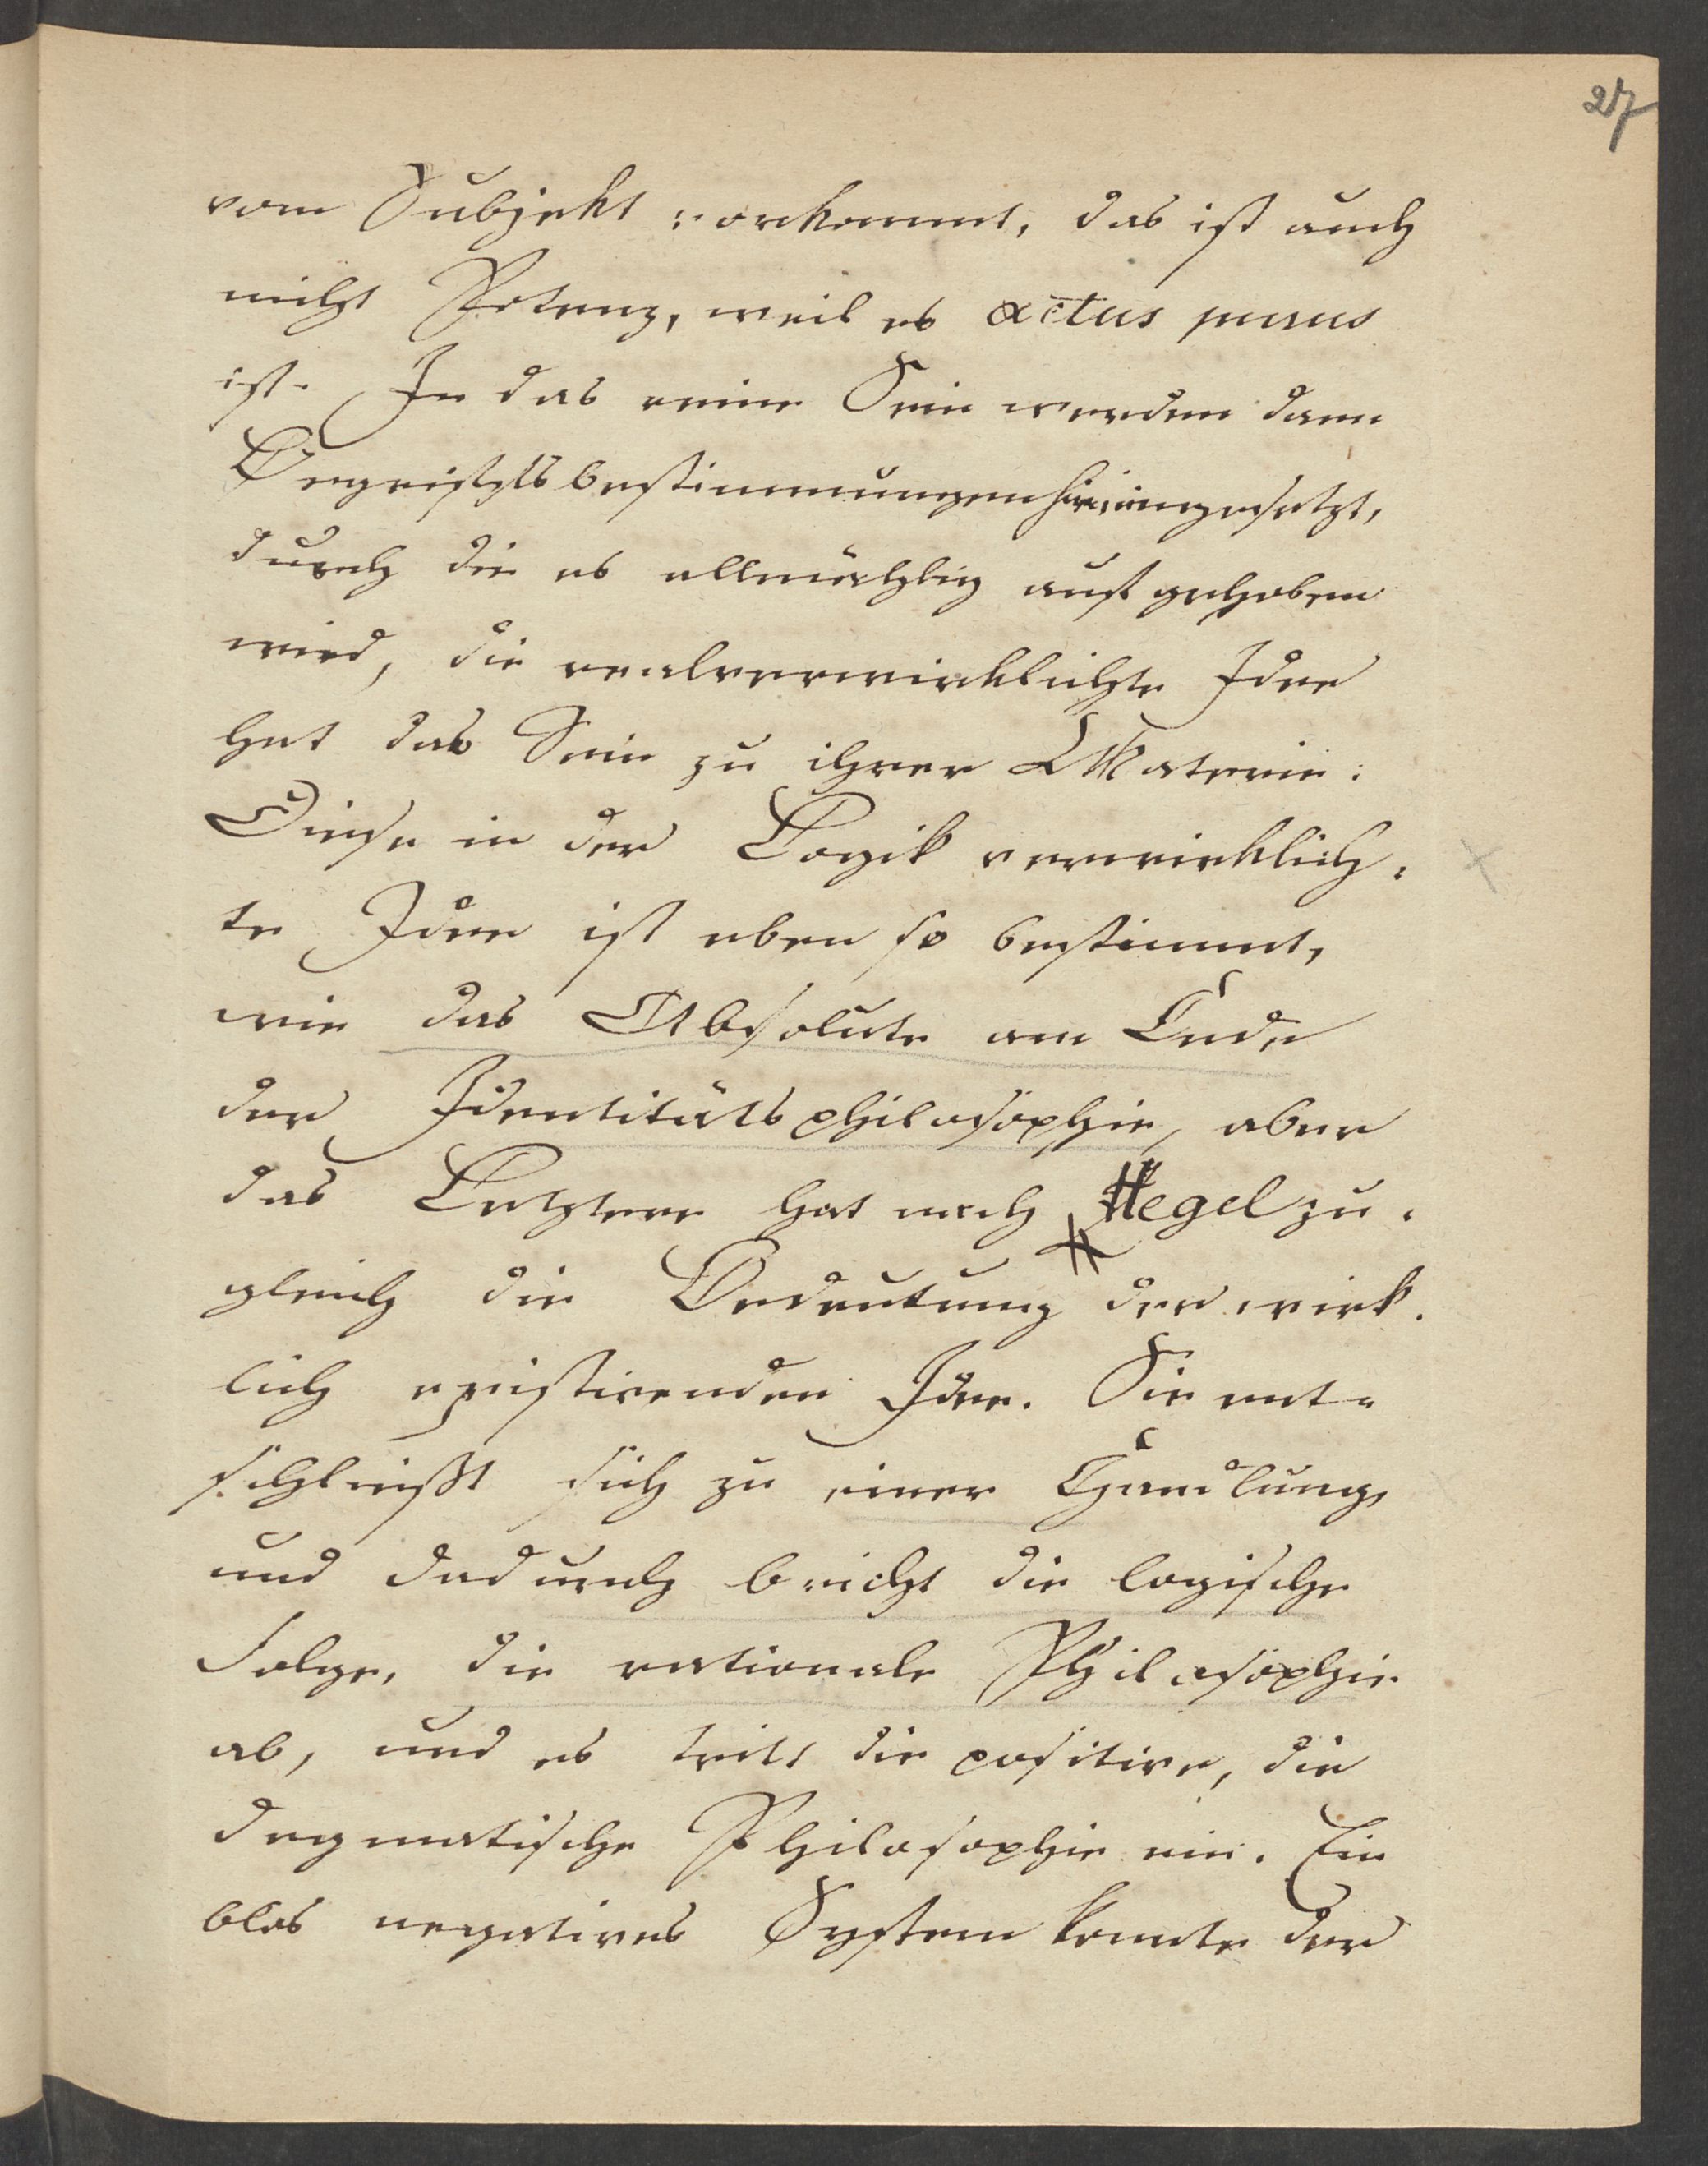 27
vom Subjekt vorkommt, das ist auch
nicht Potenz, weil es actus purus
ist. In das reine Sein werden dann
Begriffsbestimmungen hineingesetzt,
durch die es allmächlig aufgehoben
wird, die realverwirklichte Idee
hat das Sein zu ihrer Materie:
Diese in der Logik verwirklich:
te Idee ist eben so bestimmt,
wie das Absolute am Ende
der Identitätsphilosophie, aber
das Letztere hat nach Hegel zu:
gleich die Bedeutung der wirk:
lich existirenden Idee. Sie ent:
schließt sich zu einer Handlung,
und dadurch bricht die logische
Folge, die rationale Philosophie
ab, und es tritt die positive, die
dogmatische Philosophie ein. Ein
blos negatives System konnte der